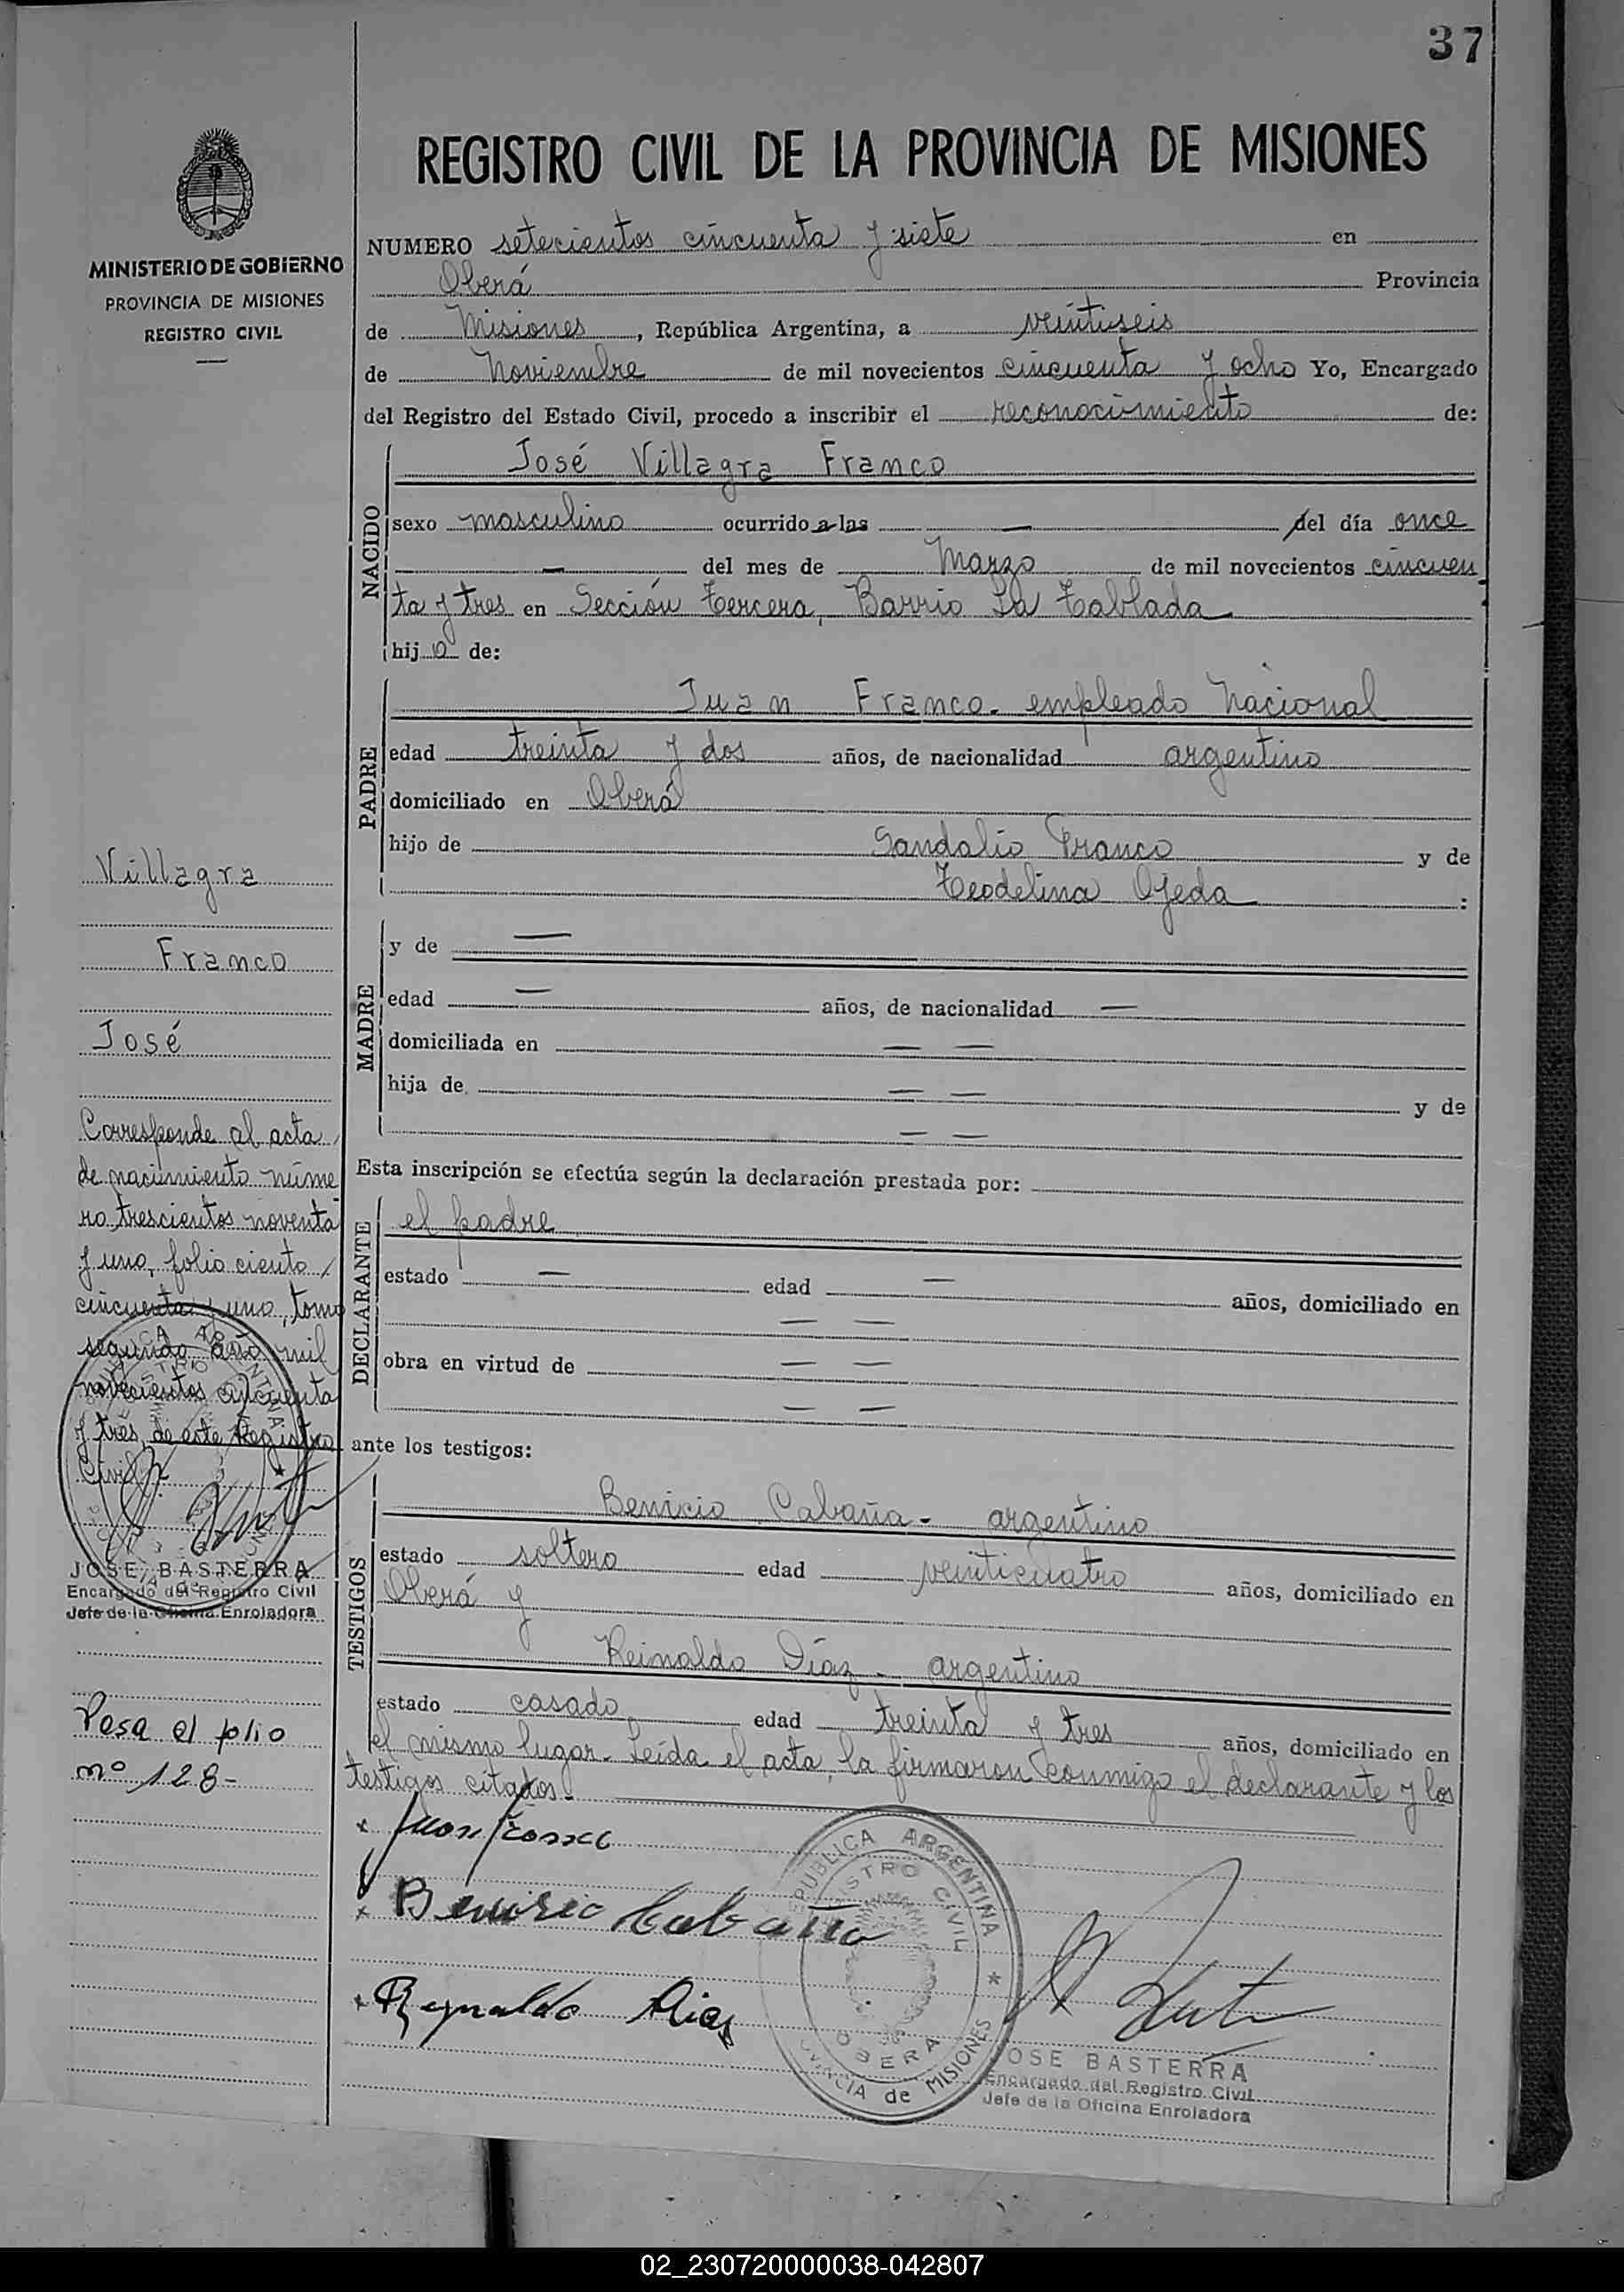 37
REGISTRO CIVIL DE LA PROVINCIA DE MISIONES
MINISTERIO DE GOBIERNO
PROVINCIA DE MISIONES
REGISTRO CIVIL
NUMERO setecientos cincuenta y siete en
Oberá Provincia
de Misiones, República Argentina, a veintiseis
de Noviembre de mil novecientos cincuenta y ocho Yo, Encargado
del Registro del Estado Civil, procedo a inscribir el reconocimiento de:
NACIDO
José Villagra Franco
sexo masculino ocurrido a las — del día once
— del mes de Marzo de mil novecientos cincuen
ta y tres en Sección Tercera, Barrio La Tablada
hijo de:
PADRE
Juan Franco - empleado Nacional
edad treinta y dos años, de nacionalidad argentino
domiciliado en Oberá
hijo de Sandalio Franco y de
Teodelina Ojeda :
MADRE
y de —
edad — años, de nacionalidad —
domiciliada en — —
hija de — — y de
— —
Esta inscripción se efectúa según la declaración prestada por:
DECLARANTE
el padre
estado — edad — años, domiciliado en
— —
obra en virtud de — —
— —
ante los testigos:
TESTIGOS
Benicio Cabaña - argentino
estado soltero edad veinticuatro años, domiciliado en
Oberá y
Reinaldo Díaz - argentino
estado casado edad treinta y tres años, domiciliado en
el mismo lugar. Leída el acta, la firmaron conmigo el declarante y los
testigos citados.-
x Juan Franco
x Benicio Cabaña
x Reynaldo Diaz
REPUBLICA ARGENTINA
REGISTRO CIVIL
OBERA
PROVINCIA de MISIONES
JOSE BASTERRA
Encargado del Registro Civil
Jefe de la Oficina Enroladora
Villagra
Franco
José
Corresponde al acta
de nacimiento núme
ro trescientos noventa
y uno, folio ciento
cincuenta y uno, tomo
segundo año mil
novecientos cincuenta
y tres, de este Registro
Civil
JOSE BASTERRA
Encargado del Registro Civil
Jefe de la Oficina Enroladora
Pasa al folio
nº 128-
02_230720000038-042807